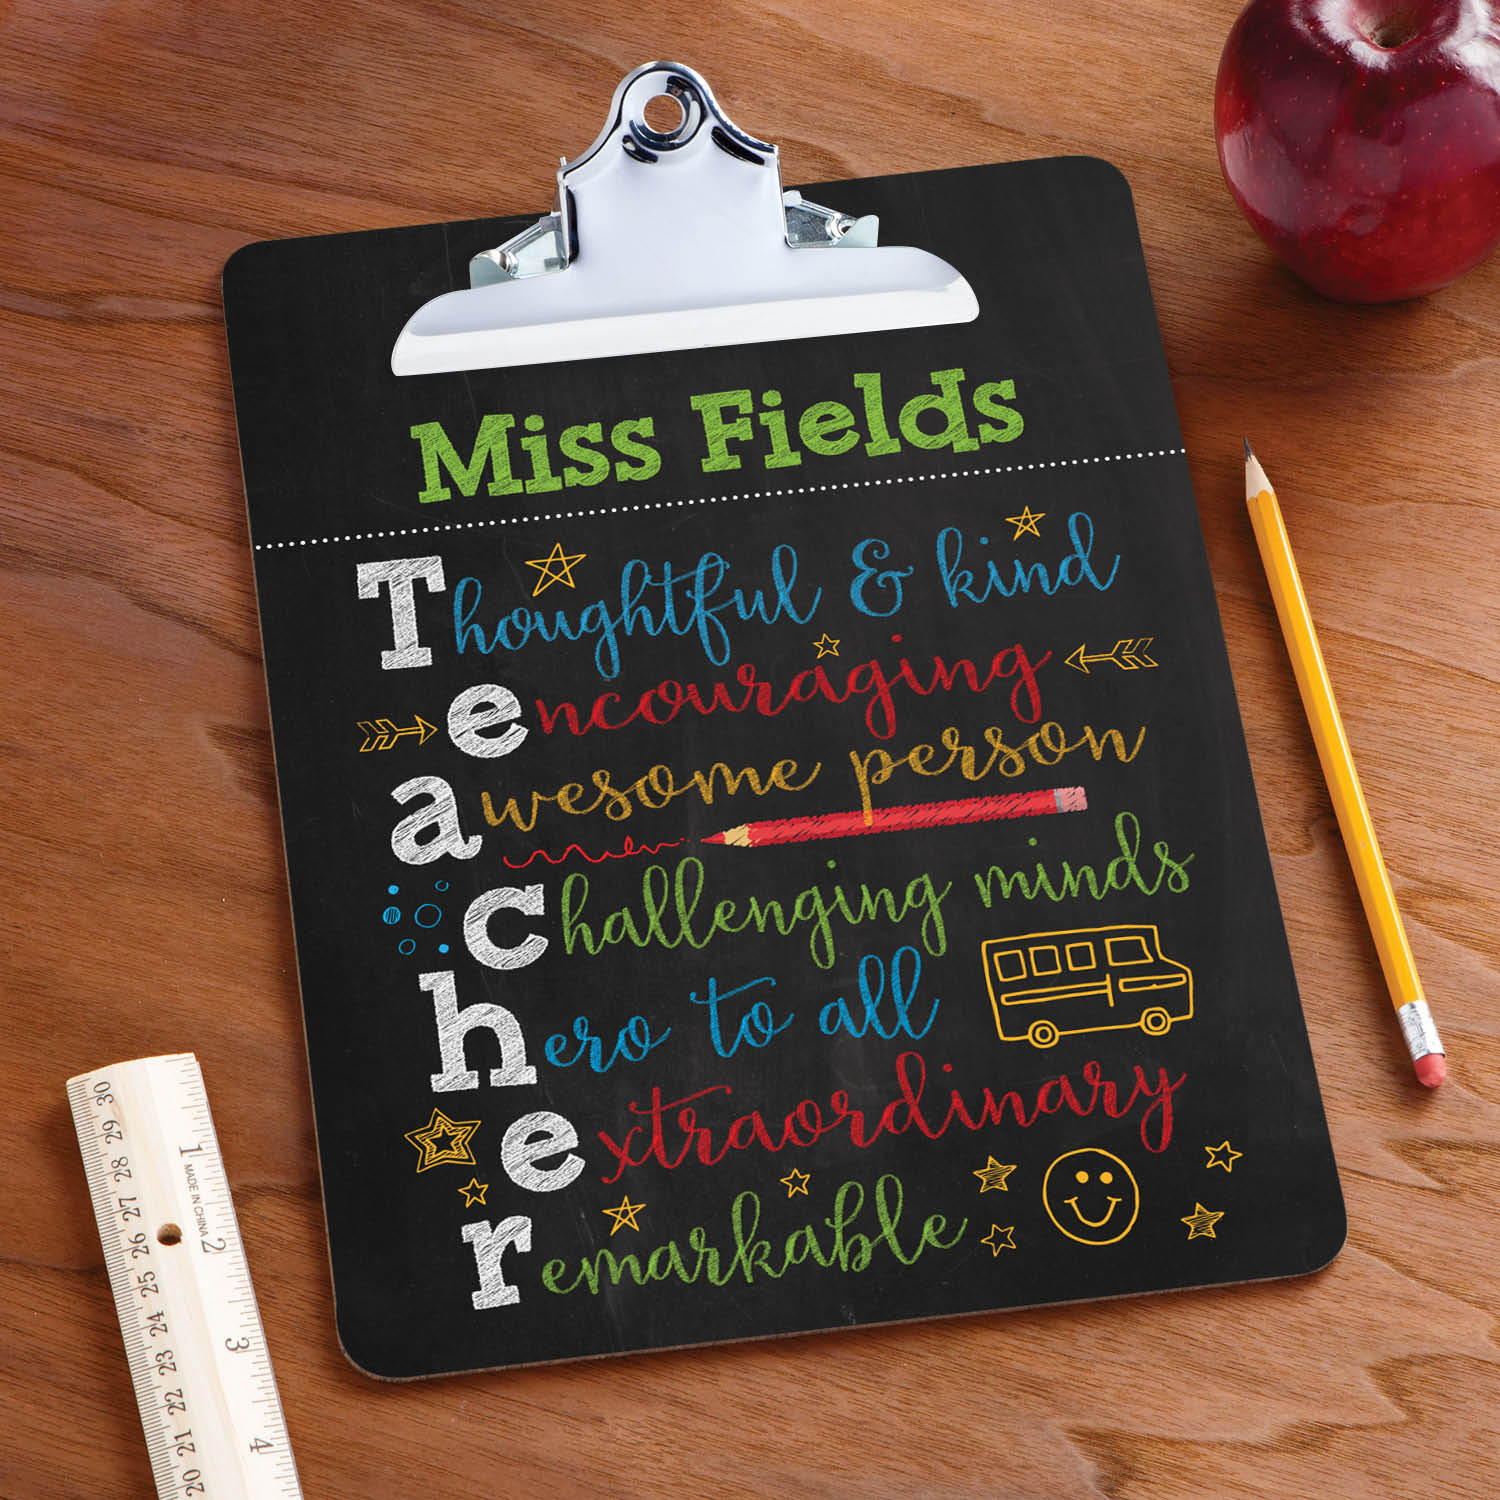 Miss Fields
Thoughtful & kind
encouraging
awesome person
challenging minds
hero to all
extraordinary
remarkable
1 2 3 4
MADE IN CHINA
30 29 28 27 26 25 24 23 22 21 20